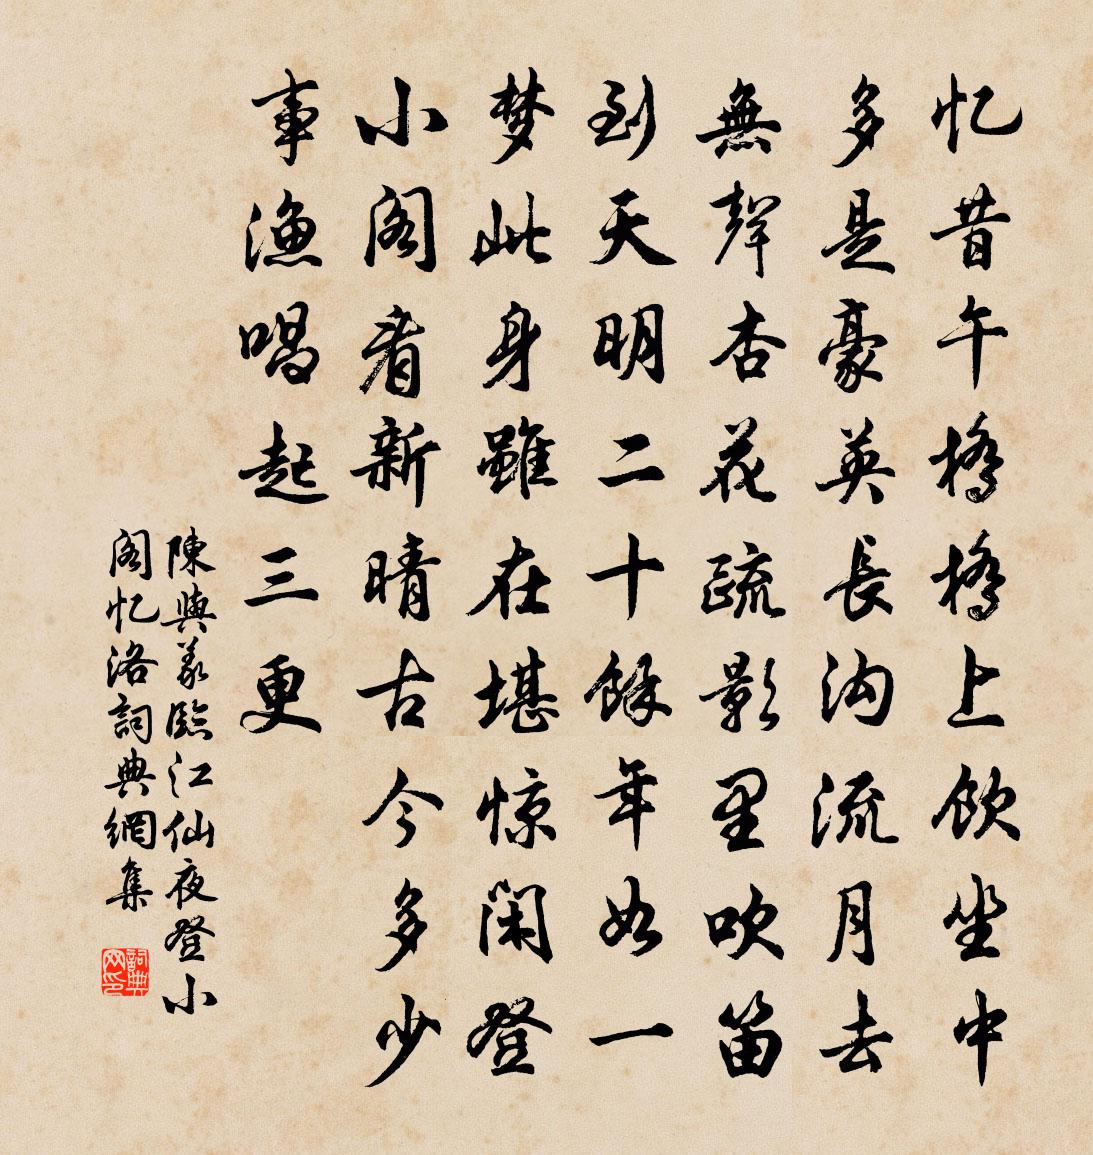 忆昔午橋橋上飲坐中
多是豪英長溝流月去
無聲杏花疏影里吹笛
到天明二十餘年如一
梦此身雖在堪惊閑登
小阁看新晴古今多少
事漁唱起三更
陳與義臨江仙夜登小
阁忆洛詞典網集
詞典网印